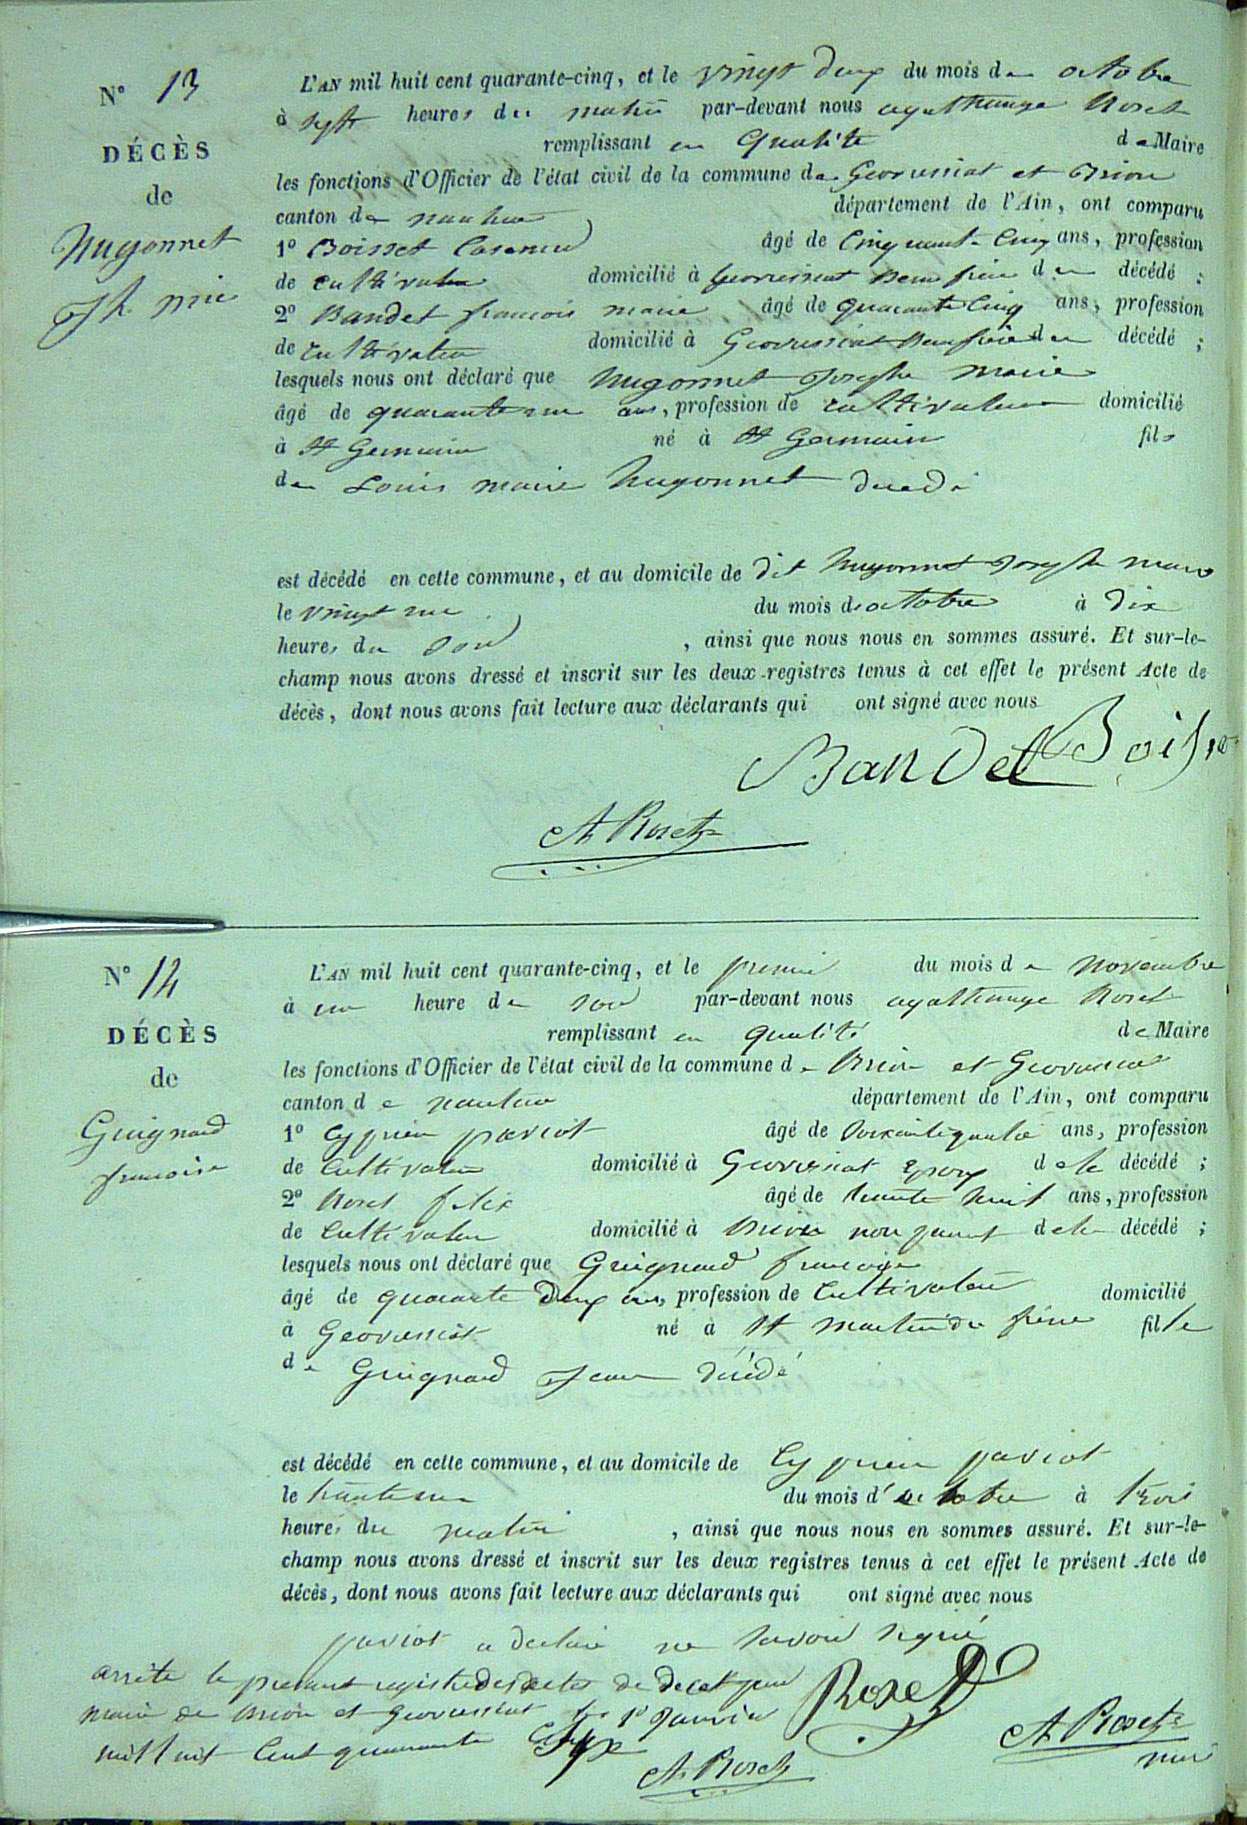 N° 13
DÉCÈS
de
Hugonnet
Jh mie
L'AN mil huit cent quarante-cinq, et le vingt deux du mois de octobre
à sept heures du matin par-devant nous agathange Roset
remplissant en qualité de Maire
les fonctions d'Officier de l'état civil de la commune de Geovressiat et Brion
canton de nantua département de l'Ain, ont comparu
1° Boisset Casimir âgé de Cinquante Cinq ans, profession
de cultivateur domicilié à Geovressiat Beau frère du décédé ;
2° Bandet francois marie âgé de quarante Cinq ans, profession
de cultivateur domicilié à Geovressiat Beau frère du décédé ;
lesquels nous ont déclaré que hugonnet Joseph marie
âgé de quarante un ans, profession de cultivateur domicilié
à St Germain né à St Germain fils
de Louis marie hugonnet décédé
est décédé en cette commune, et au domicile de dit hugonnet Joseph marie
le vingt un du mois d'octobre à dix
heures du soir, ainsi que nous nous en sommes assuré. Et sur-le-
champ nous avons dressé et inscrit sur les deux registres tenus à cet effet le présent Acte de
décès, dont nous avons fait lecture aux déclarants qui ont signé avec nous
BanDet Boisse
A Roset
N° 14
DÉCÈS
de
Guignard
francoise
L'AN mil huit cent quarante-cinq, et le premier du mois de novembre
à une heure du soir par-devant nous agathange Roset
remplissant en qualité de Maire
les fonctions d'Officier de l'état civil de la commune de Brion et Geovressiat
canton de nantua département de l'Ain, ont comparu
1° Cyprien paviot âgé de soixante quatre ans, profession
de Cultivateur domicilié à Geovressiat Epoux de la décédé ;
2° Roset felix âgé de trente huit ans, profession
de Cultivateur domicilié à Brion non parent de la décédé ;
lesquels nous ont déclaré que Guignard francoise
âgé de quarante deux ans, profession de Cultivateur domicilié
à Geovressiat né à St martin du frêne fille
de Guignard Jean décédé
est décédé en cette commune, et au domicile de Cyprien paviot
le trente un du mois d'octobre à trois
heures du matin, ainsi que nous nous en sommes assuré. Et sur-le-
champ nous avons dressé et inscrit sur les deux registres tenus à cet effet le présent Acte de
décès, dont nous avons fait lecture aux déclarants qui ont signé avec nous
paviot a declaré ne savoir signé
arrête le présent registre des actes de decet par
maire de Brion et Geovressiat le 1er Janvier
mil huit Cent quarante six
Roset
A Roset
A Roset